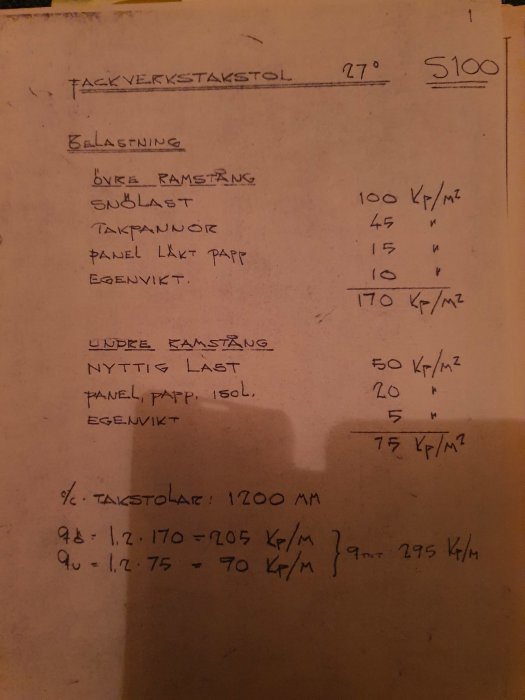 1
FACKVERKSTAKSTOL 27° S100
BELASTNING
ÖVRE RAMSTÅNG
SNÖLAST 100 Kp/m²
TAKPANNOR 45 "
PANEL LÄKT PAPP 15 "
EGENVIKT. 10 "
170 Kp/m²
UNDRE RAMSTÅNG
NYTTIG LAST 50 Kp/m²
PANEL, PAPP. ISOL. 20 "
EGENVIKT 5 "
75 Kp/m²
c/c. TAKSTOLAR: 1200 MM
qö = 1,2 · 170 = 205 Kp/m
qu = 1,2 · 75 = 90 Kp/m } 295 Kp/m